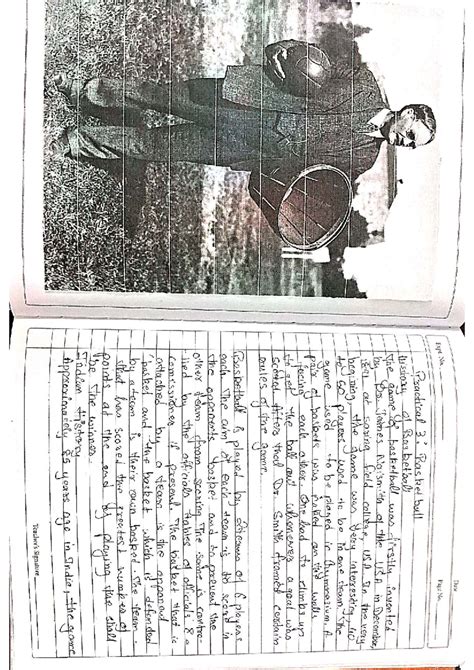 Expt. No.
Date
Page No.
Practical 3: Basketball
History of Basketball
The game of basketball was firstly invented
by Dr. James Naismith of the USA in December,
1891 at spring field college, USA. In the very
begining the game was very interesting. 40
to 50 players used to be in one team. The
game used to be played in Gymnasium. A
pair of baskets was hanked on the walls
facing each other. One had to climb up
to get the ball and whenever a goal was
scored. After that Dr. Smith framed certain
rules of the game.
Basketball is played by 2 teams of 5 players
each. The aim of each team is to score in
the opponents basket and to prevent the
other team from scoring. The game is contro-
lled by the officials, table officials & a
commissioner, if present. The basket that is
attacked by a team is the opponent
basket and the basket which is defended
by a team is their own basket. The team
that has scored the greatest number of
points at the end of playing time shall
be the winner.
Indian History
Approximately 85 years ago in India, the game
Teacher's Signature